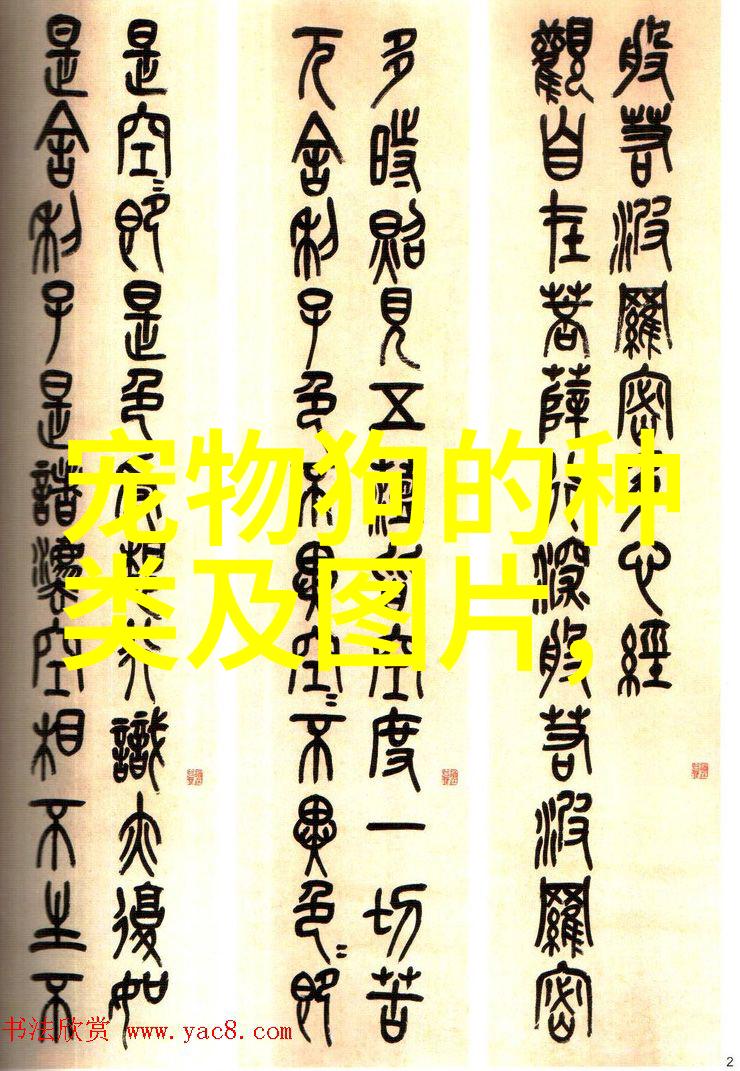 般若波羅密多心經
觀自在菩薩行深般若波羅密
多時照見五蘊皆空度一切苦
厄舍利子色不異空〻不異色〻即
是空〻即是色受想行識亦復如
是舍利子是諸灋空相不生不
宠物狗的种
类及图片,
书法欣赏 www.yac8.com
2